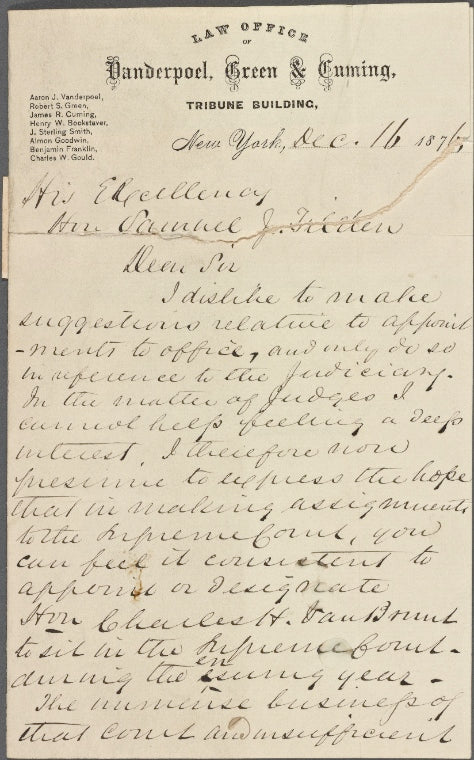 LAW OFFICE
OF
Vanderpoel, Green & Cuming,
TRIBUNE BUILDING,
Aaron J. Vanderpoel,
Robert S. Green,
James R. Cuming,
Henry W. Bookstaver,
J. Sterling Smith,
Almon Goodwin,
Benjamin Franklin,
Charles W. Gould.
New York, Dec. 16 1876,
His Excellency
Hon Samuel J. Tilden
Dear Sir
I dislike to make
suggestions relative to appoint
-ments to office, and only do so
in reference to the Judiciary.
In the matter of Judges I
cannot help feeling a deep
interest. I therefore now
presume to express the hope
that in making assignments
to the Supreme Court, you
can feel it consistent to
appoint or designate
Hon Charles H. Van Brunt
to sit in the Supreme Court -
during the ensuing year -
The immense business of
that Court and insufficient